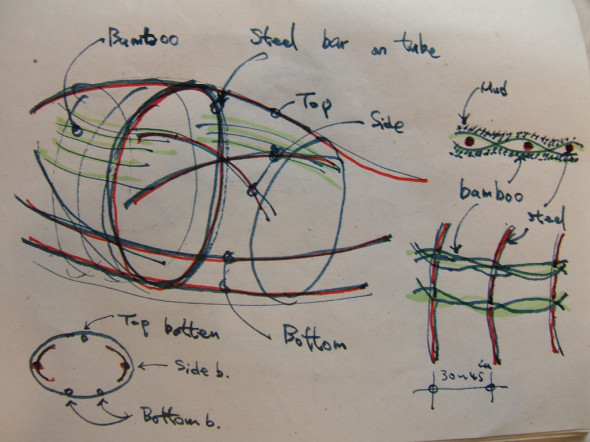 Bamboo
Steel bar or tube
Top
Side
Mud
bamboo
steel
Bottom
Top batten
Side b.
Bottom b.
in
30~45